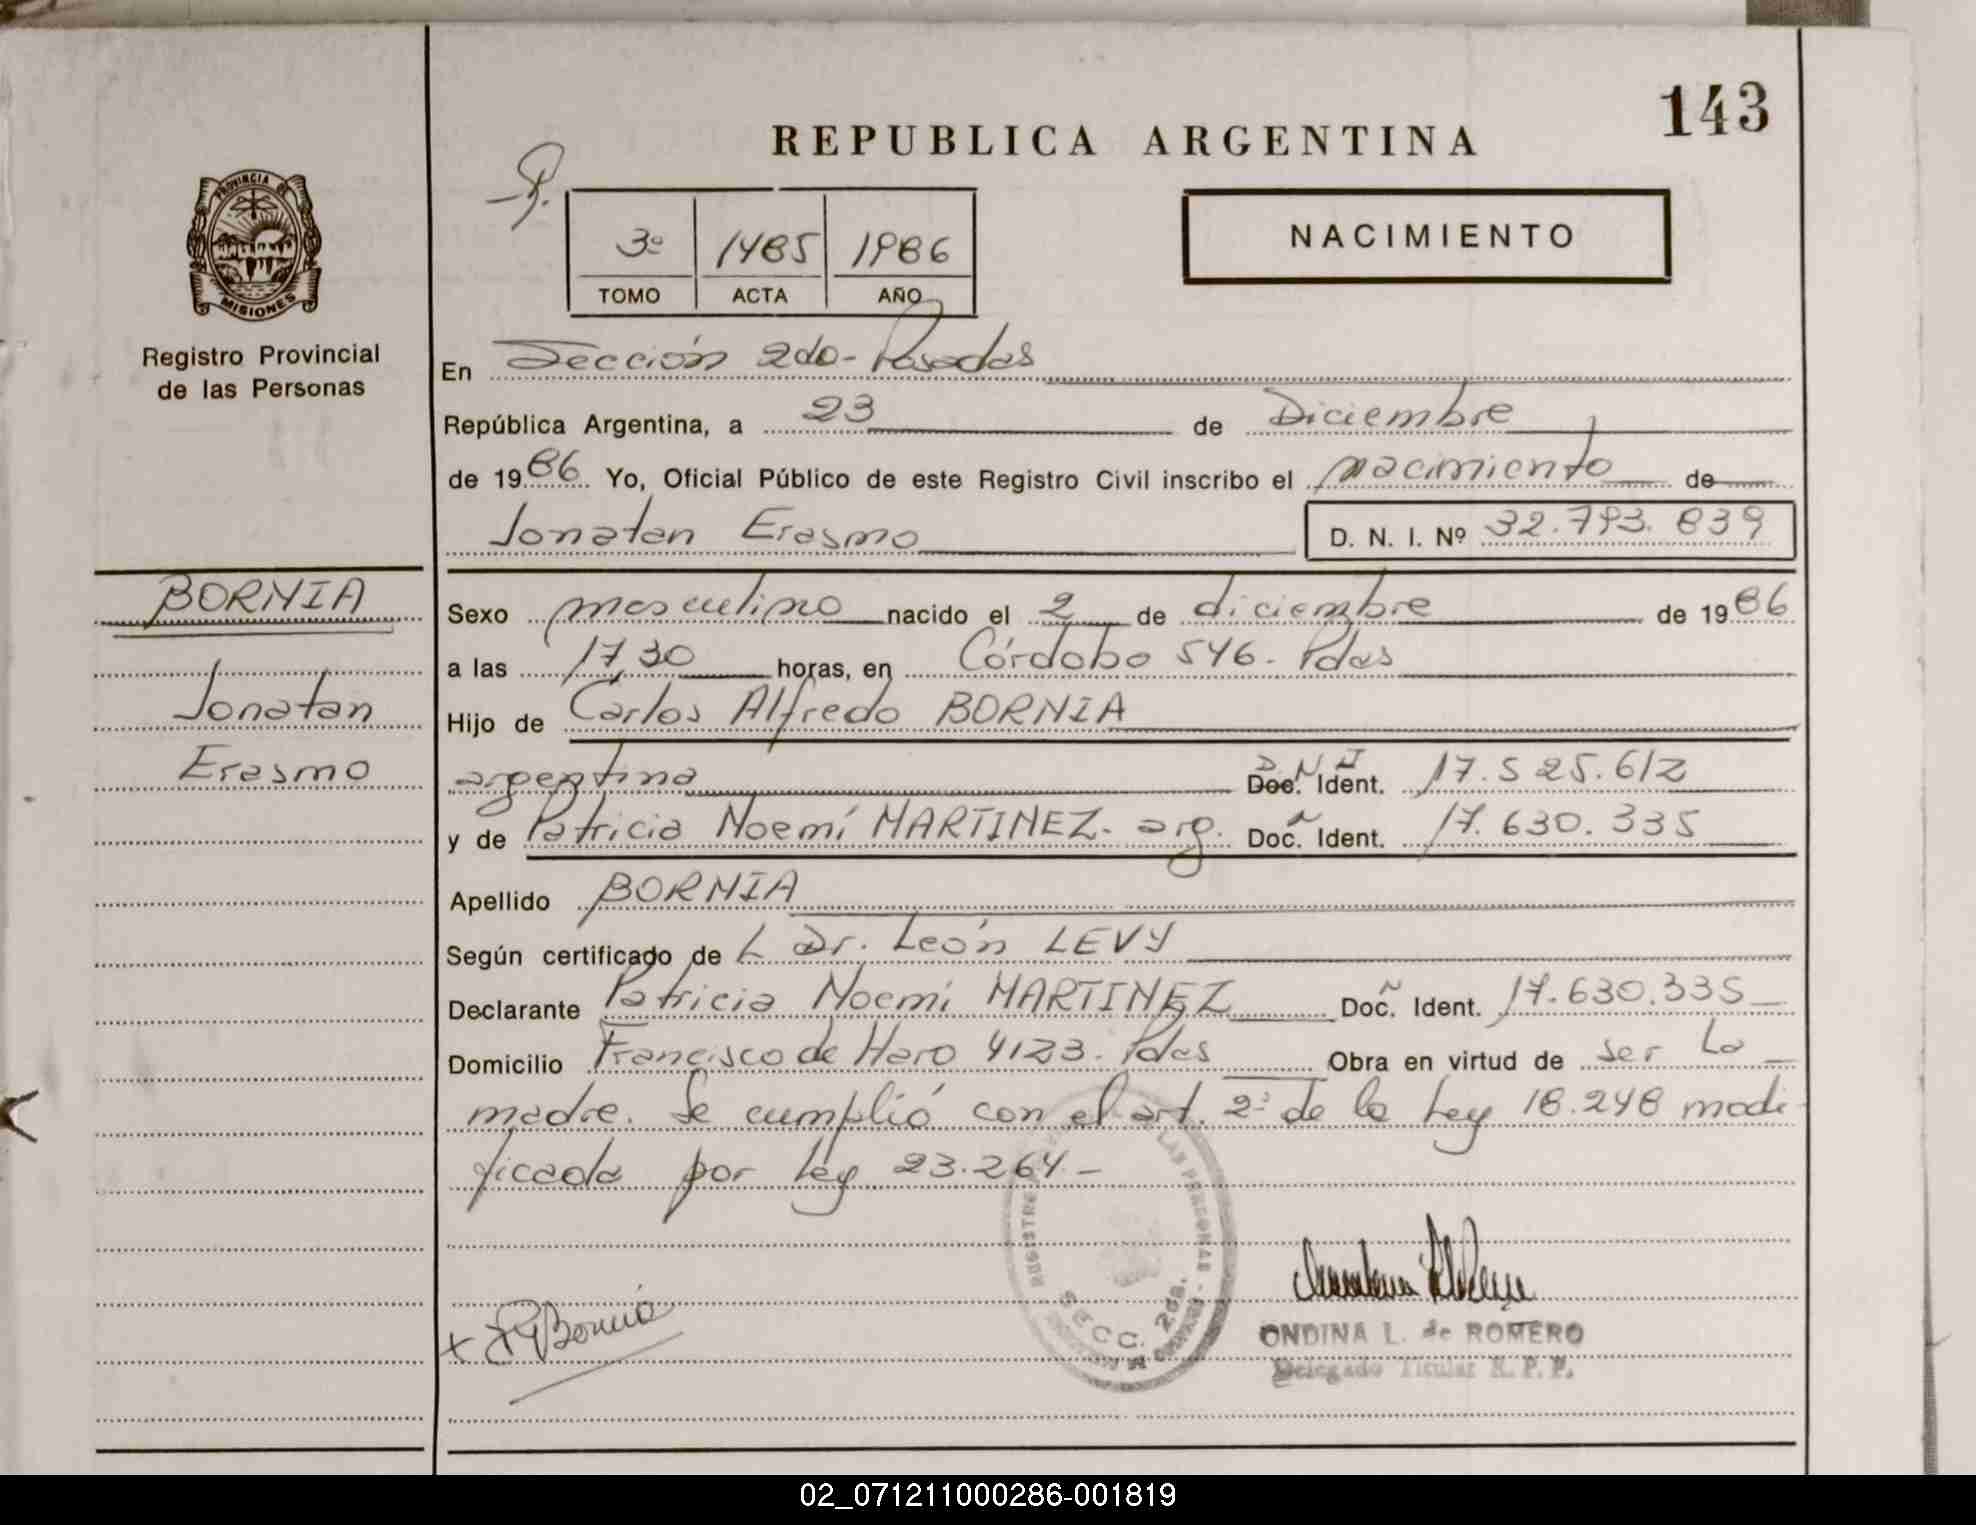 143
REPUBLICA ARGENTINA
PROVINCIA DE
MISIONES
Registro Provincial
de las Personas
3º 1485 1986
TOMO ACTA AÑO
NACIMIENTO
En Sección 2da- Posadas
República Argentina, a 23 de Diciembre
de 1986 Yo, Oficial Público de este Registro Civil inscribo el nacimiento de
Jonatan Erasmo D. N. I. Nº 32.793.839
BORNIA
Jonatan
Erasmo
Sexo masculino nacido el 2 de diciembre de 1986
a las 17,30 horas, en Córdoba 546- Pdas
Hijo de Carlos Alfredo BORNIA
argentina D N I Doc. Ident. 17.525.612
y de Patricia Noemí MARTINEZ- arg. Doc. Ident. 17.630.335
Apellido BORNIA
Según certificado de L Dr. León LEVY
Declarante Patricia Noemí MARTINEZ Doc. Ident. 17.630.335
Domicilio Francisco de Haro 4123- Pdas Obra en virtud de ser la
madre. Se cumplió con el art. 2º de la Ley 18.248 modi
ficada por ley 23.264.-
LAS PERSONAS
SECC. 2da.
Bornia
ONDINA L. de ROMERO
Delegado Titular R. P. P.
02_071211000286-001819